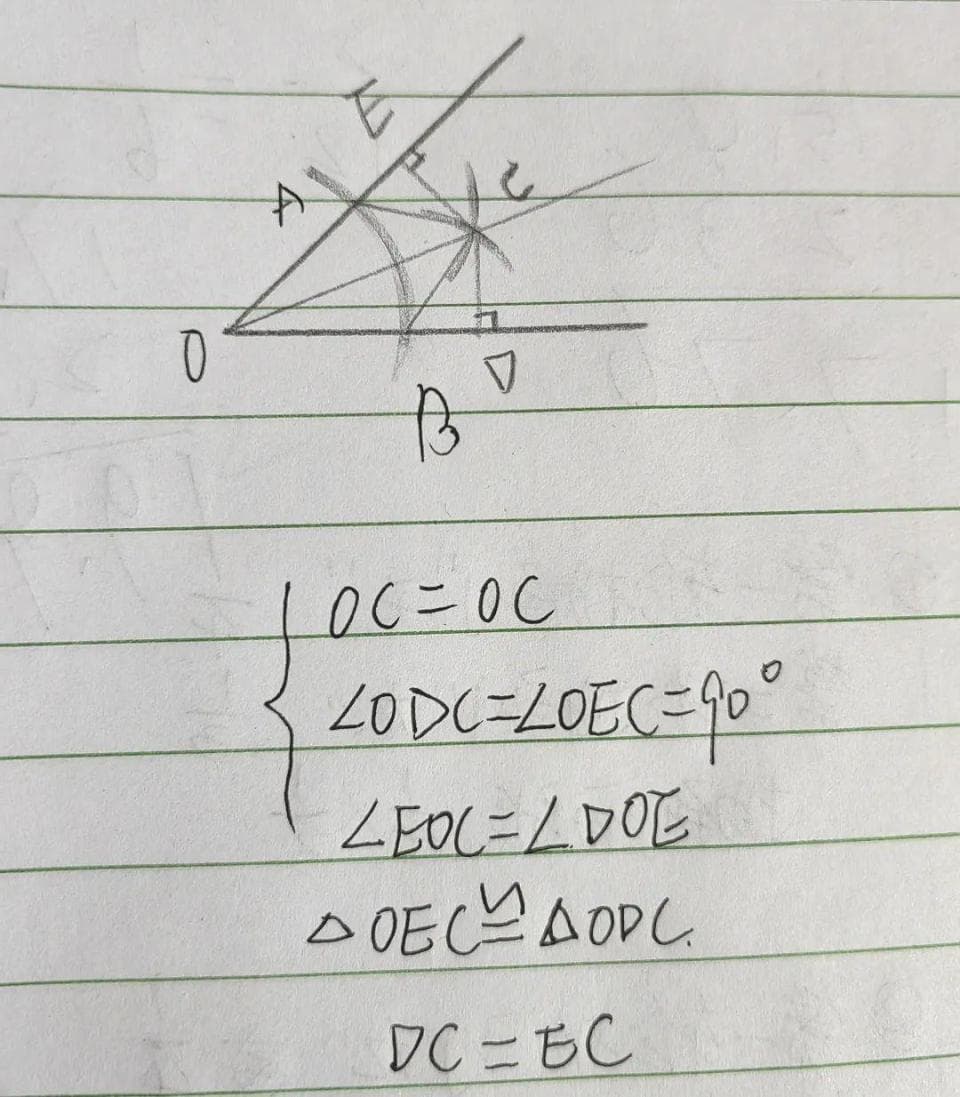 E
A
C
O
D
B
OC=OC
∠ODC=∠OEC=90°
∠EOC=∠DOE
△OEC≌△ODC.
DC=EC